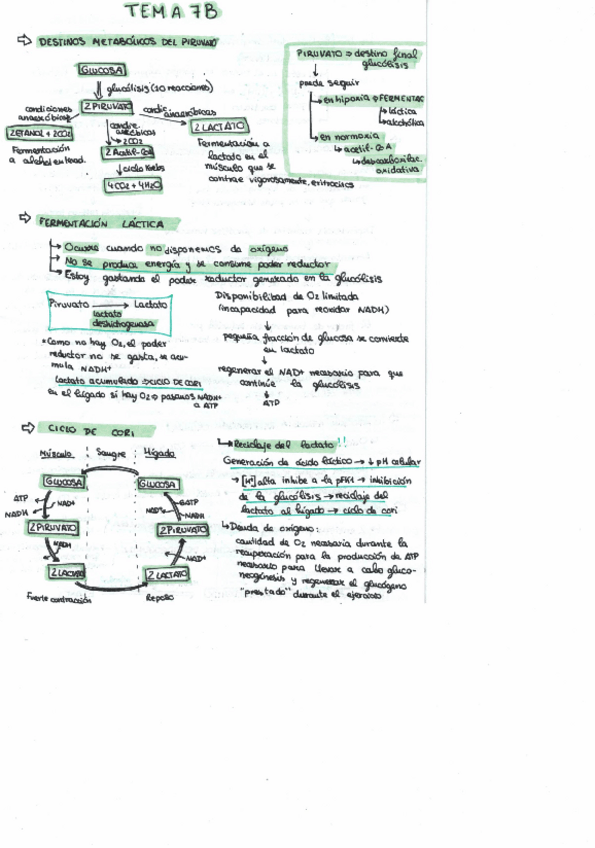 TEMA 7B
⇨ DESTINOS METABÓLICOS DEL PIRUVATO
GLUCOSA
glucólisis (10 reacciones)
condiciones anaeróbicas
2 PIRUVATO
condic. anaeróbicas
2 ETANOL + 2CO2
condic. aeróbicas
2CO2
2 LACTATO
Fermentación
a alcohol en levad.
2 Acetil-CoA
ciclo Krebs
4CO2 + 4H2O
Fermentación a
lactato en el
músculo que se
contrae vigorosamente, eritrocitos
PIRUVATO ⇒ destino final
glucólisis
puede seguir
en hipoxia ⇒ FERMENTAC
láctica
alcohólica
en normoxia
acetil-CoA
descarboxilac.
oxidativa
⇨ FERMENTACIÓN LÁCTICA
Ocurre cuando no disponemos de oxígeno
No se produce energía y se consume poder reductor
Estoy gastando el poder reductor generado en la glucólisis
Piruvato → Lactato
lactato
deshidrogenasa
* Como no hay O2, el poder
reductor no se gasta, se acu-
mula NADH+
Lactato acumulado ⇒ CICLO DE CORI
en el hígado si hay O2 ⇒ pasamos NADH+
a ATP
Disponibilidad de O2 limitada
(incapacidad para reoxidar NADH)
↓
pequeña fracción de glucosa se convierte
en lactato
↓
regenerar el NAD+ necesario para que
continúe la glucólisis
↓
ATP
⇨ CICLO DE CORI
Músculo Sangre Hígado
GLUCOSA GLUCOSA
ATP
NAD+
NADH
6ATP
NAD+
NADH
2 PIRUVATO 2 PIRUVATO
NADH
NAD+
2 LACTATO 2 LACTATO
Fuerte contracción Reposo
Reciclaje del lactato!!
Generación de ácido láctico → ↓ pH celular
→ [H+] alta inhibe a la PFK1 → inhibición
de la glucólisis → reciclaje del
lactato al hígado → ciclo de cori
↳ Deuda de oxígeno:
cantidad de O2 necesaria durante la
recuperación para la producción de ATP
necesario para llevar a cabo gluco-
neogénesis y regenerar el glucógeno
"prestado" durante el ejercicio